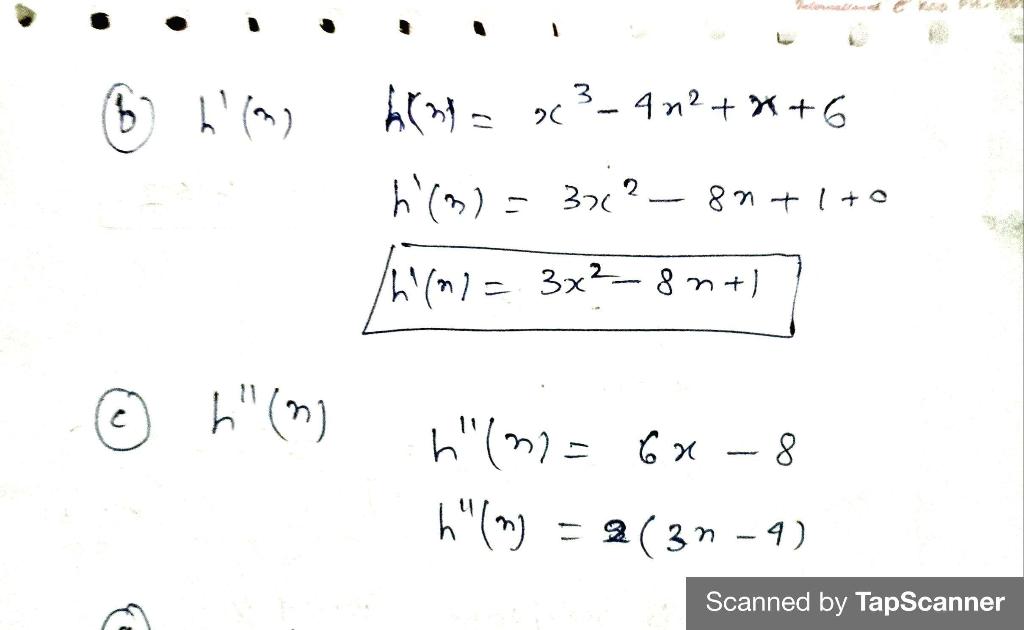 (b) h'(x) h(x) = x³ - 4x² + x + 6
h'(x) = 3x² - 8x + 1 + 0
h'(x) = 3x² - 8x + 1
(c) h''(x)
h''(x) = 6x - 8
h''(x) = 2(3x - 4)
Scanned by TapScanner